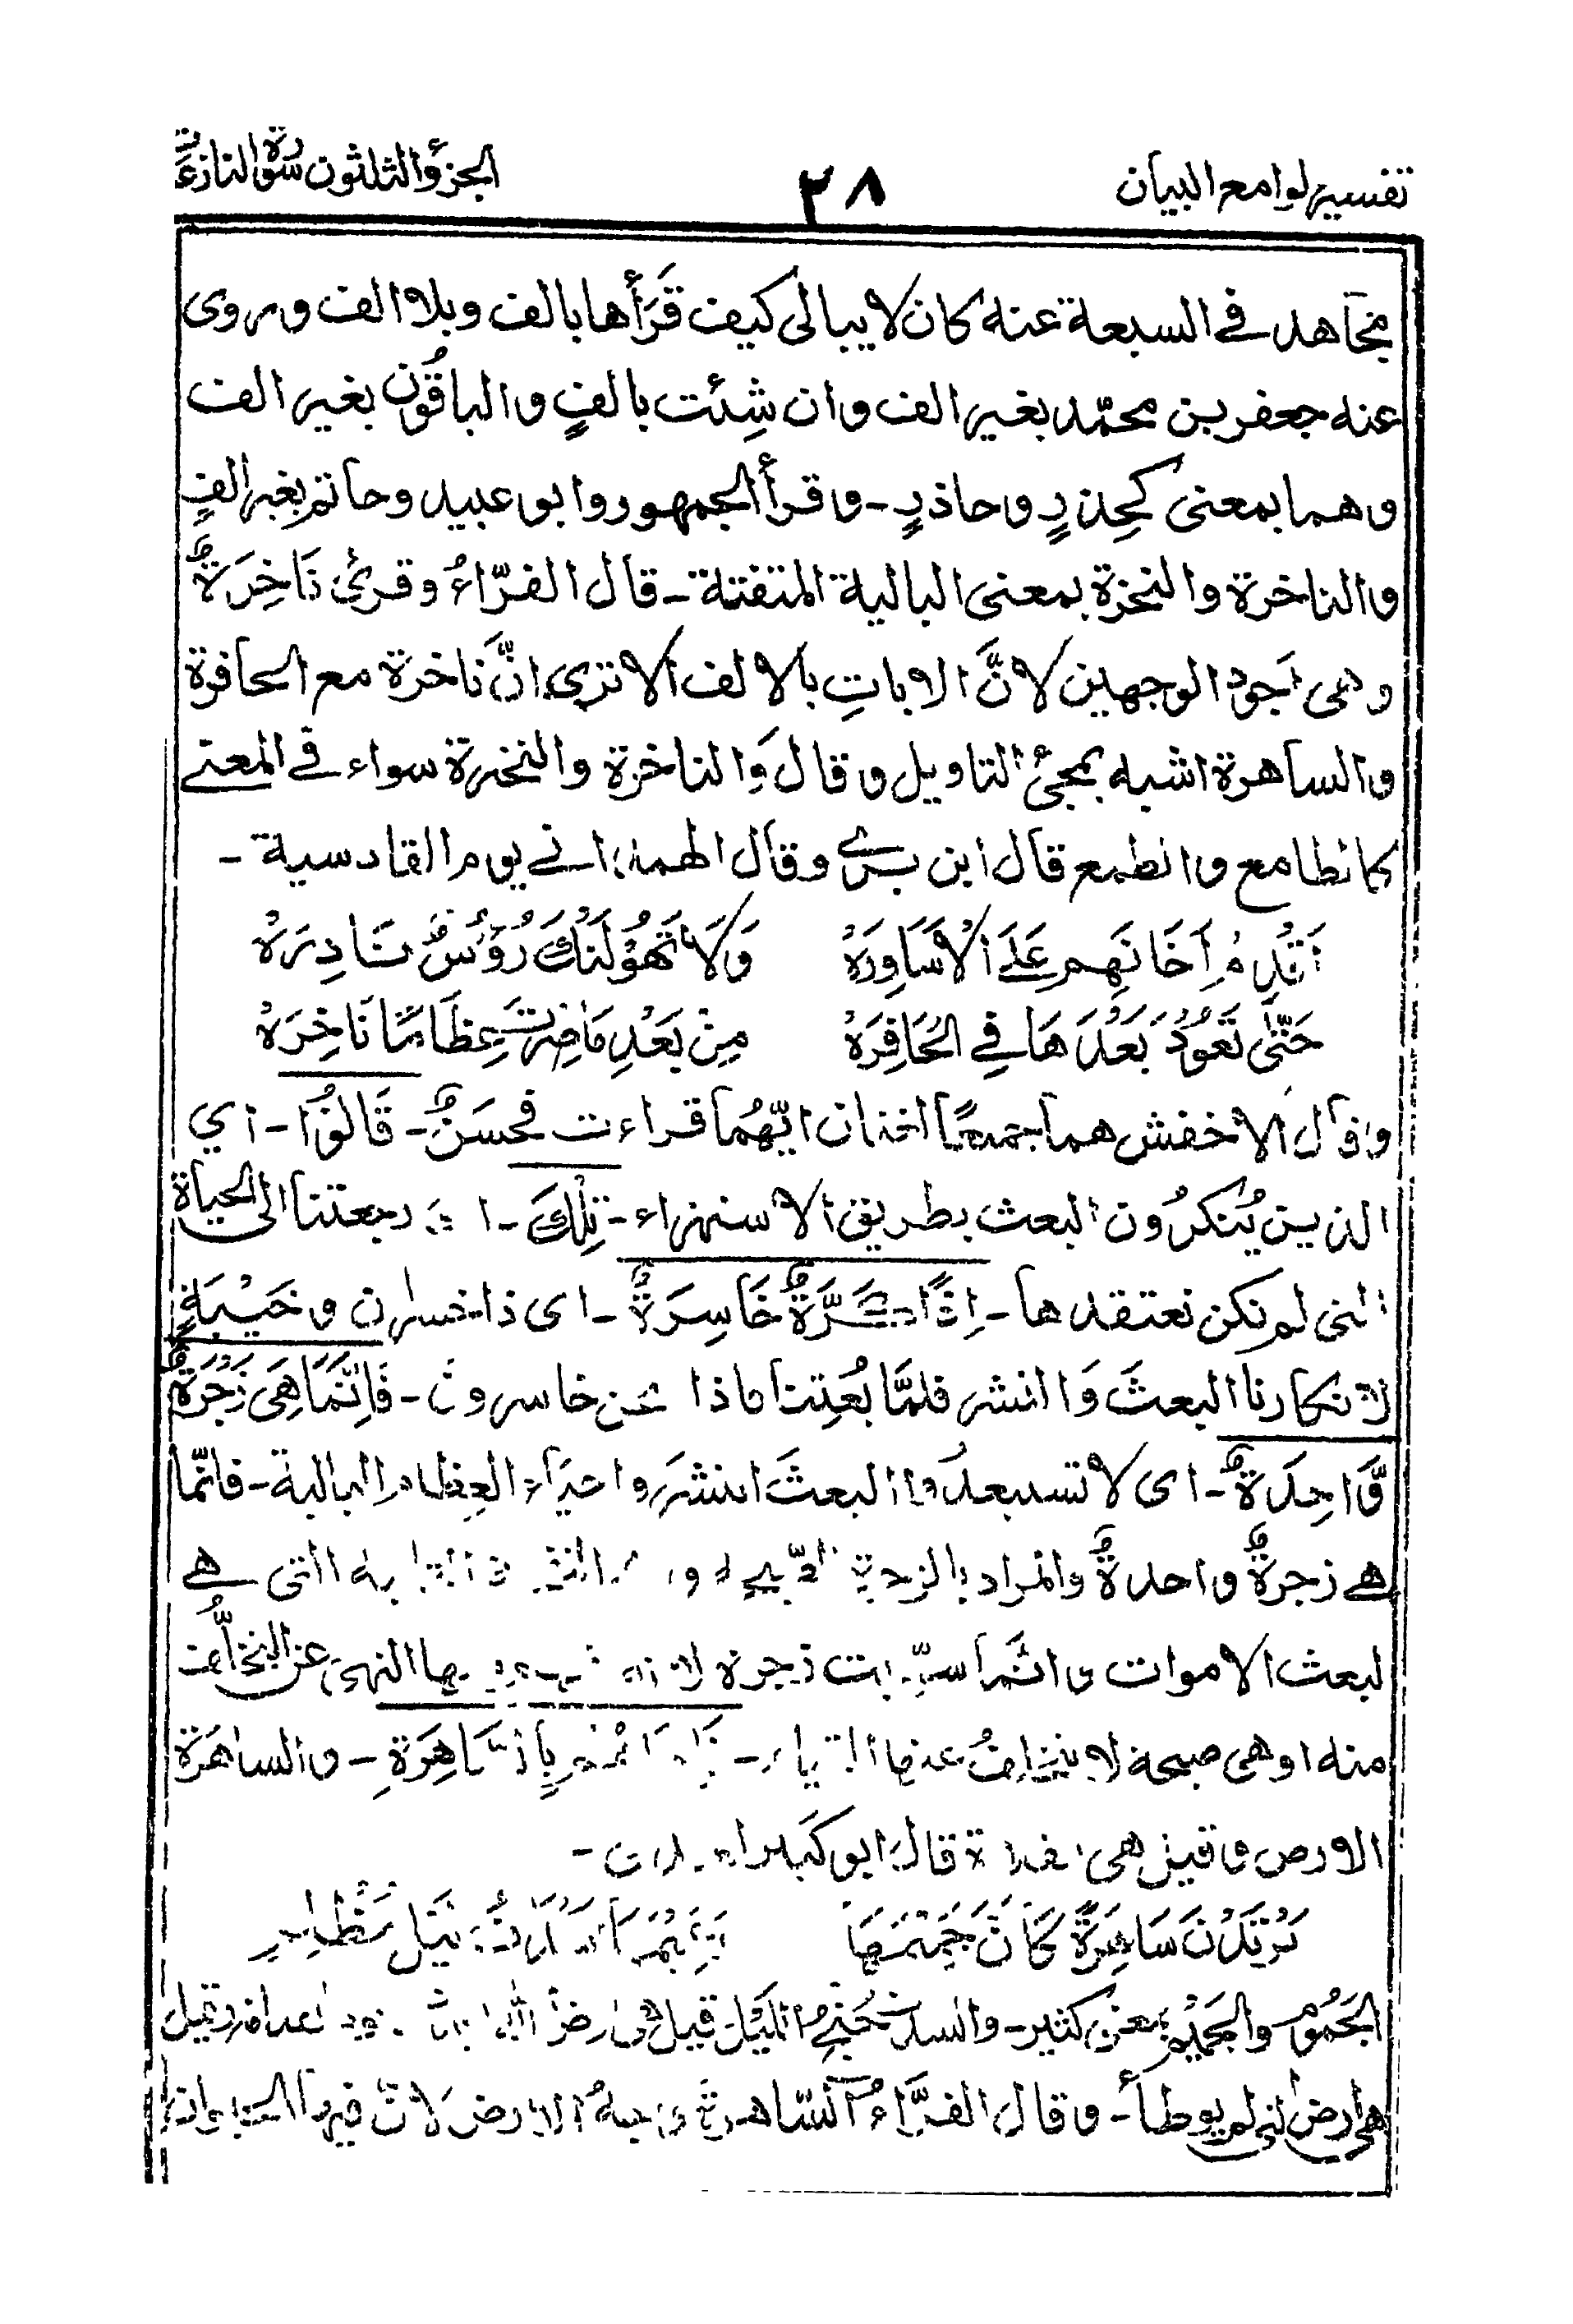 تفسير لوامع البيان
٢٨
الجزؤ الثلثون سورة النازعت
مجاهد في السبعة عنه كان لا يبالى كيف قَرَأها بالف وبلا الف وروى
عنه جعفر بن محمّد بغير الف وان شِئت بالفٍ والباقُون بغير الف
وهما بمعنى كحِذرٍ وحاذرٍ - وقرأ الجمهور وابو عبيد وحاتم بغير الفٍ
والناخرة والنخرة بمعنى البالية المتفتتة - قال الفرّاءُ وقرئ نَاخِرَةٌ
وهى اَجود الوجهين لانَّ الاياتِ بالالف الا ترى انَّ ناخرة مع الحافرة
والساهرة اشبه بمجئ التاويل وقال وَالناخرة والنخرة سواء في المعنى
كالطامع والطمع قال ابن برى وقال الهمدانى يوم القادسية -
اَقْدِمْ اَخَا نَهِمٍ عَلَى الْاَسَاوِرَهْ وَلَا تَهُوْلَنْكَ رُؤُسٌ نَادِرَهْ
حَتّٰى تَعُوْدَ بَعْدَهَا فِي الْحَافِرَهْ مِنْ بَعْدِ مَا صِرْتَ عِظَامًا نَاخِرَهْ
وقال الاخفش هما جميعًا لغتان ايّهُما قراءت فحسَنٌ - قَالُوْا - اي
الذين يُنكرُون البعث بطريق الاستهزاء - تِلْكَ - اى رجعتنا الى الحياة
التى لم نكن نعتقدها - اِذًا كَرَّةٌ خَاسِرَةٌ - اى ذا خسران وخَيْبَةٍ
لانكارنا البعثَ وَالنشر فلمَّا بُعِثنا فاذا نحن خاسرون - فَاِنَّمَا هِىَ زَجْرَةٌ
وَّاحِدَةٌ - اى لا تستبعدُوا البعثَ والنشَر واحياء العظام البالية - فانّما
هى زجرةٌ واحدةٌ والمراد بالزجرة التى هى
لبعث الاموات وانّما سمّيت زجرة بها النهى عن التخلُّف
منه او هى صيحة لا يتخلفُ عنها بِالسَّاهِرَةِ - والساهرة
الارض وقيل هى قال ابو كبير
يَرْتَدْنَ سَاهِرَةً كَاَنَّ جَمِيْمَهَا مُظْلِمِ
الجَمُومِ والجَمِيْمِ بمعنى كثير - اللَّيْلِ قيل هى ارضٌ وقيل
هى ارض التى لم يوطأ - وقال الفرَّاءُ السّاهرة وجهُ الارض لانّ فيها